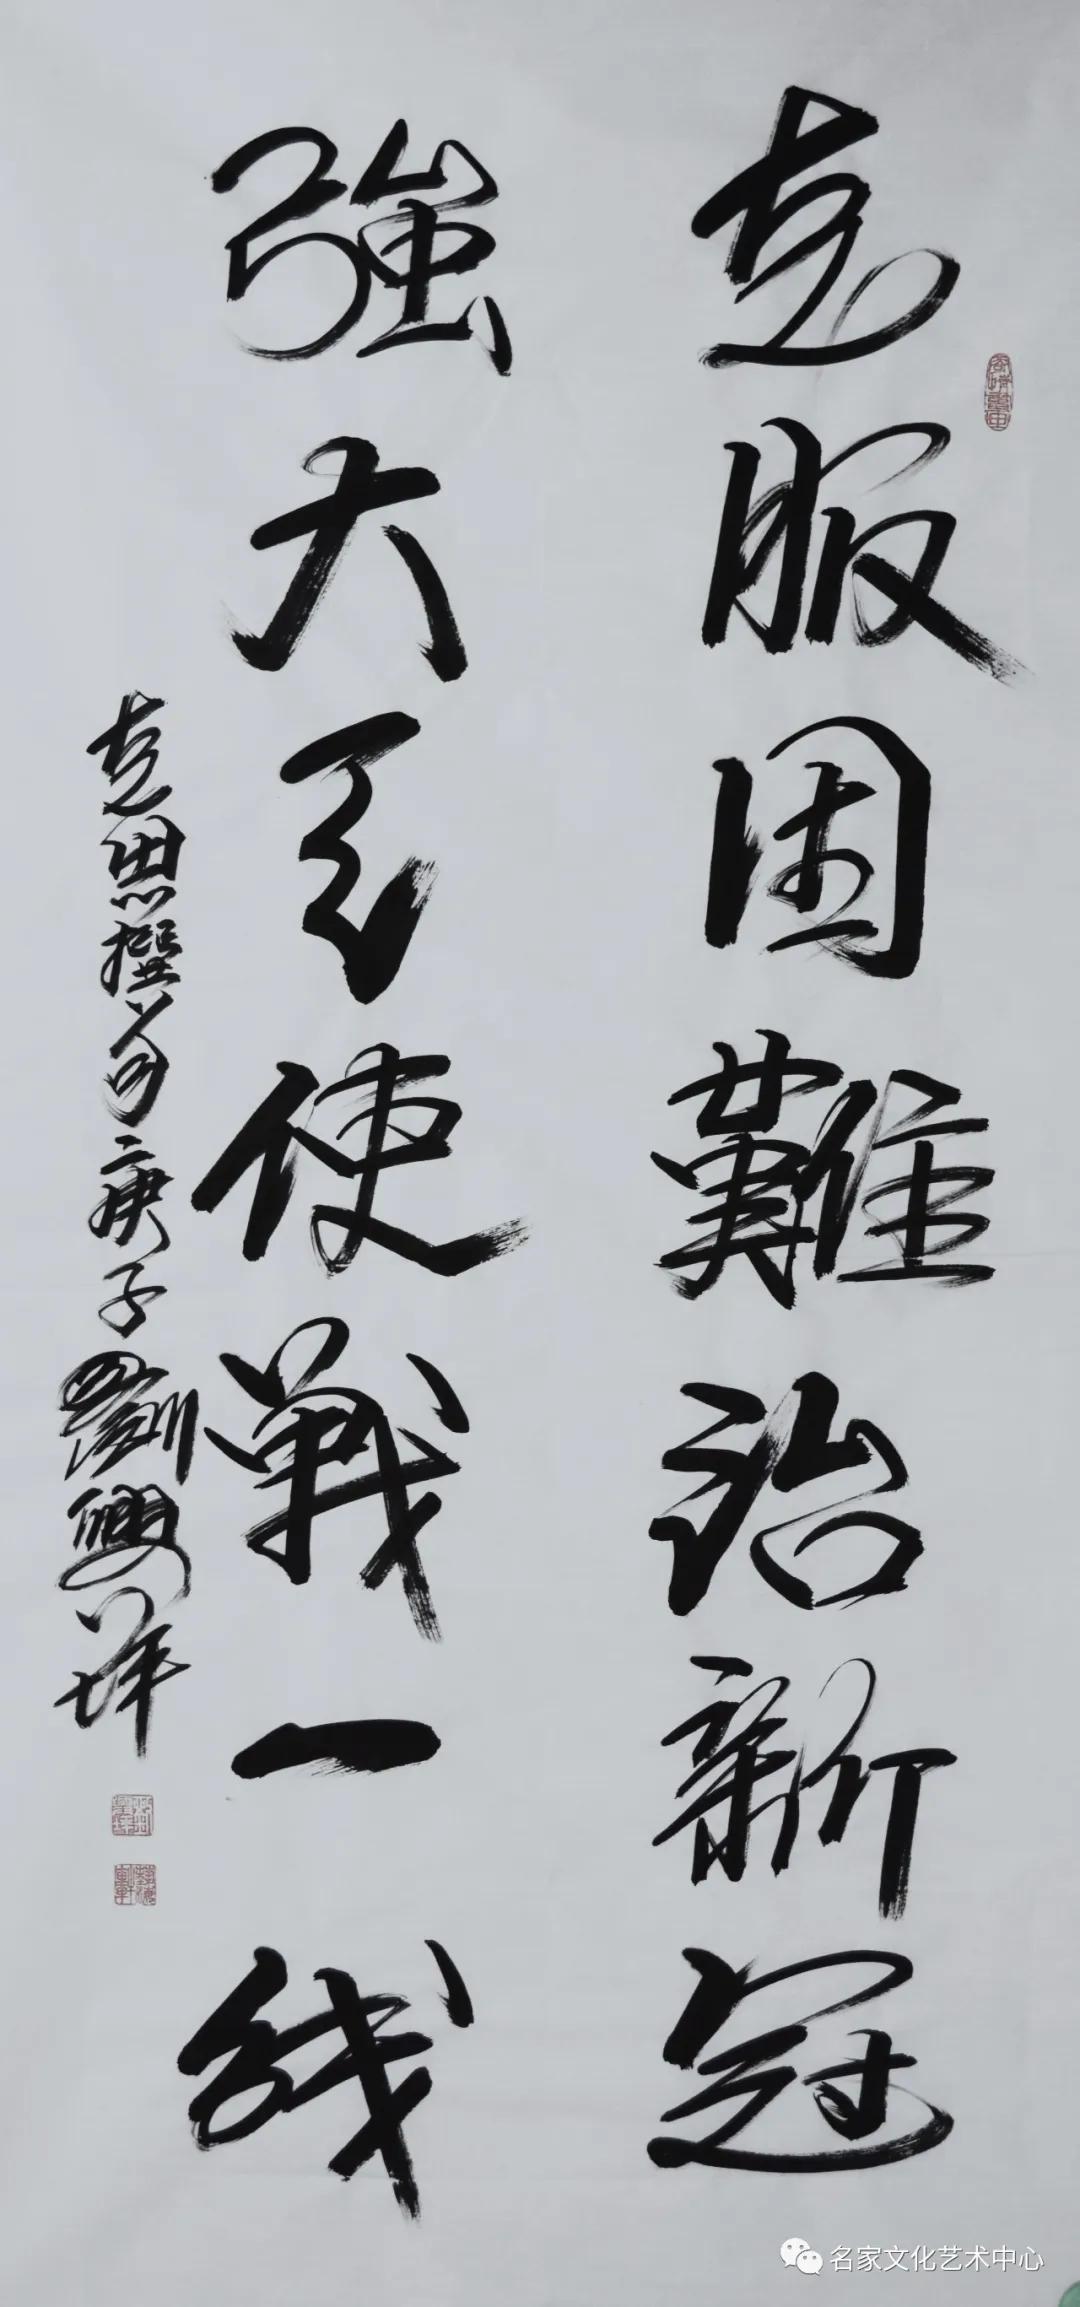 克服困難治新冠
強大天使戰一线
克思撰句庚子劉興
名家文化艺术中心